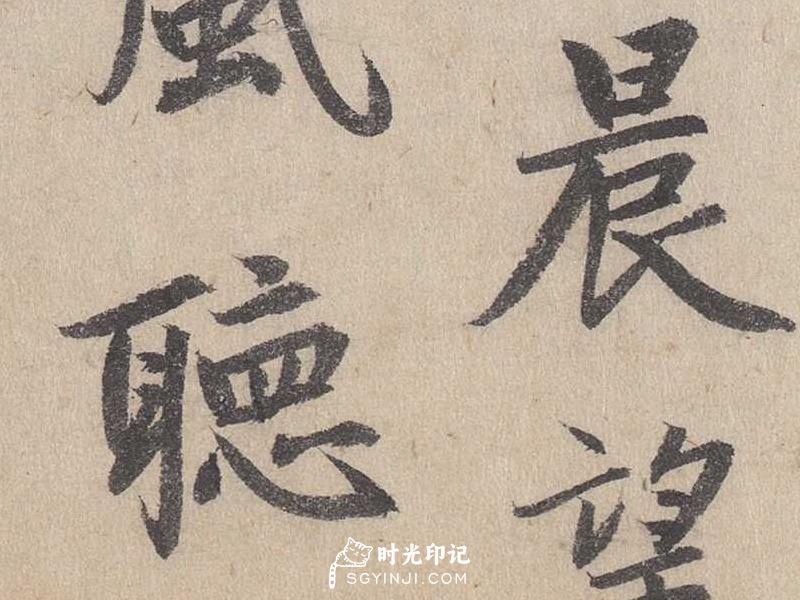 晨望
風聽
时光印记
SGYINJI.COM